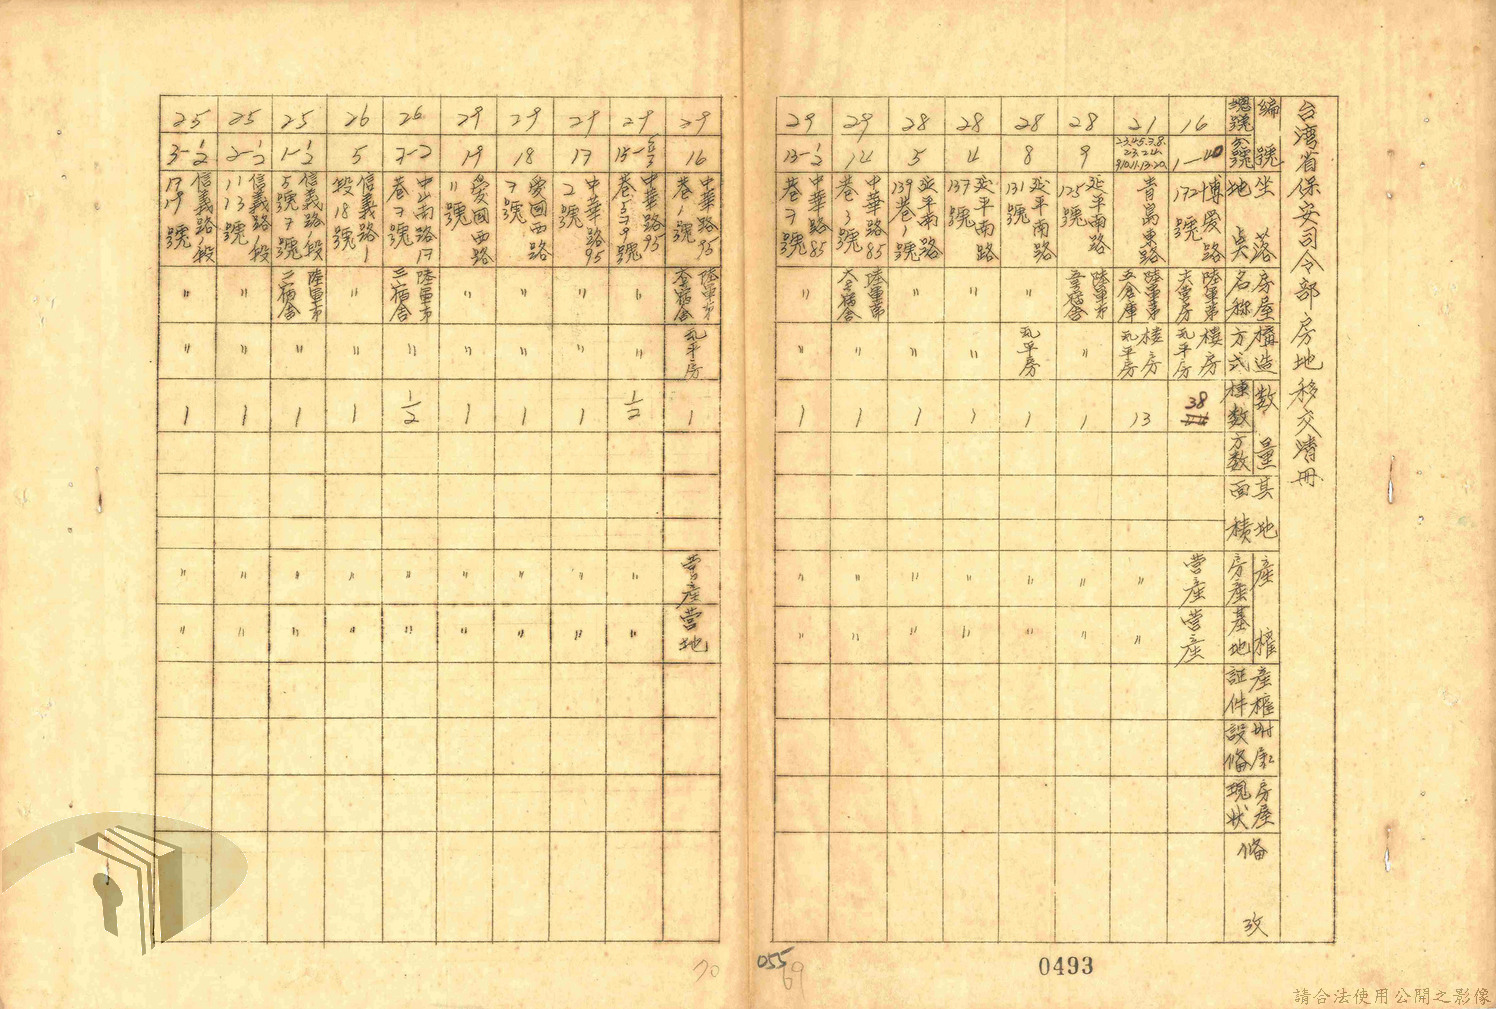 台湾省保安司令部房地移交清冊
編號 總號 分號
坐落地点
房屋名称
構造方式
数量 棟数 方数
其地面積
産權 房産 基地
産權証件
附屬設備
房屋現状
備攷
16 1—40 博愛路172號 陸軍第六営房 楼房瓦平房 38 営産 営産
21 青島東路 陸軍第五倉庫 楼房瓦平房 13 〃 〃
28 9 延平南路125號 陸軍第五宿舍 〃 1 〃 〃
28 8 延平南路131號 〃 瓦平房 1 〃 〃
28 4 延平南路137號 〃 〃 1 〃 〃
28 5 延平南路139巷1號 〃 〃 1 〃 〃
29 14 中華路85巷3號 陸軍第六宿舍 〃 1 〃 〃
29 13-1/2 中華路85巷7號 〃 〃 1 〃 〃
29 16 中華路95巷1號 陸軍第六宿舍 瓦平房 1 営産 営地
29 中華路95巷5 7 9號 〃 〃 1/2 〃 〃
29 17 中華路95 2號 〃 〃 1 〃 〃
29 18 愛国西路7號 〃 〃 1 〃 〃
29 19 愛国西路11號 〃 〃 1 〃 〃
26 7-2 中山南路17巷7號 陸軍第三宿舍 〃 1/2 〃 〃
26 5 信義路1段18號 〃 〃 1 〃 〃
25 1-1/2 信義路1段5號7號 陸軍第二宿舍 〃 1 〃 〃
25 2-1/2 信義路1段11 13號 〃 〃 1 〃 〃
25 3-1/2 信義路1段17 19號 〃 〃 1 〃 〃
055
69
70
0493
請合法使用公開之影像